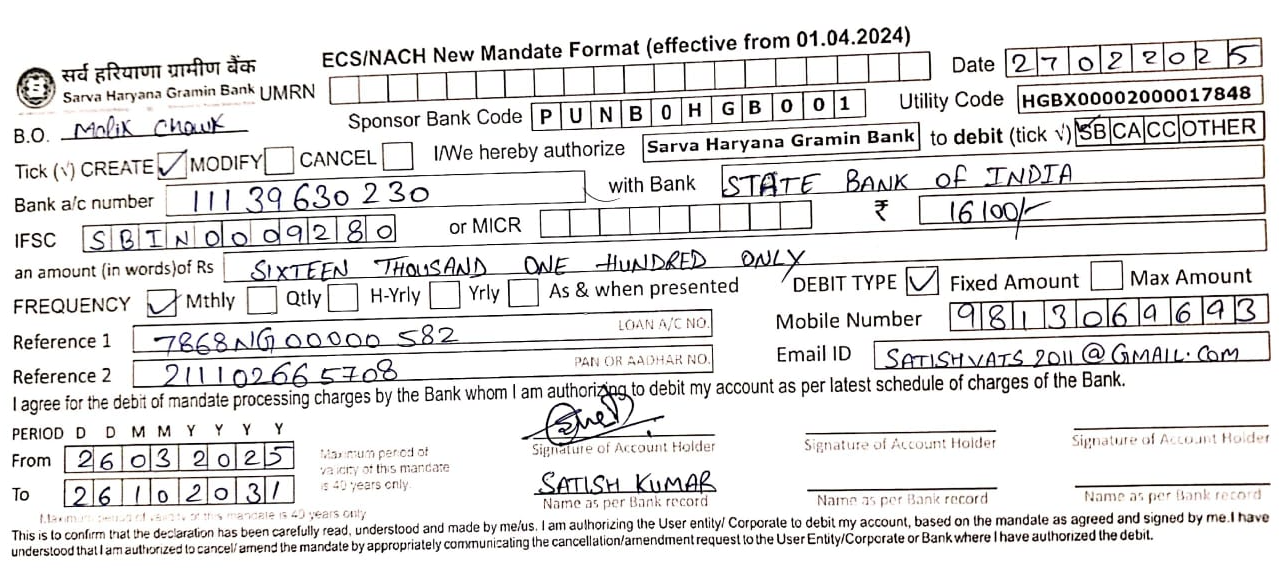 ECS/NACH New Mandate Format (effective from 01.04.2024)
सर्व हरियाणा ग्रामीण बैंक
Sarva Haryana Gramin Bank UMRN Date 27022025
B.O. Malik Chowk Sponsor Bank Code PUNB0HGB001 Utility Code HGBX00002000017848
Tick (√) CREATE ✓ MODIFY CANCEL I/We hereby authorize Sarva Haryana Gramin Bank to debit (tick √) SB CA CC OTHER
Bank a/c number 11139630230 with Bank STATE BANK OF INDIA
IFSC SBIN0009280 or MICR ₹ 16100/-
an amount (in words)of Rs SIXTEEN THOUSAND ONE HUNDRED ONLY
FREQUENCY ✓ Mthly Qtly H-Yrly Yrly As & when presented DEBIT TYPE ✓ Fixed Amount Max Amount
Reference 1 7868NG00000582 LOAN A/C NO. Mobile Number 9813069693
Reference 2 211102665708 PAN OR AADHAR NO. Email ID SATISHVATS2011@GMAIL.COM
I agree for the debit of mandate processing charges by the Bank whom I am authorizing to debit my account as per latest schedule of charges of the Bank.
PERIOD D D M M Y Y Y Y
From 26032025 Maximum period of validity of this mandate is 40 years only.
Signature of Account Holder Signature of Account Holder Signature of Account Holder
To 26102031 SATISH KUMAR
Name as per Bank record Name as per Bank record Name as per Bank record
Maximum period of validity of this mandate is 40 years only
This is to confirm that the declaration has been carefully read, understood and made by me/us. I am authorizing the User entity/ Corporate to debit my account, based on the mandate as agreed and signed by me.I have
understood that I am authorized to cancel/ amend the mandate by appropriately communicating the cancellation/amendment request to the User Entity/Corporate or Bank where I have authorized the debit.